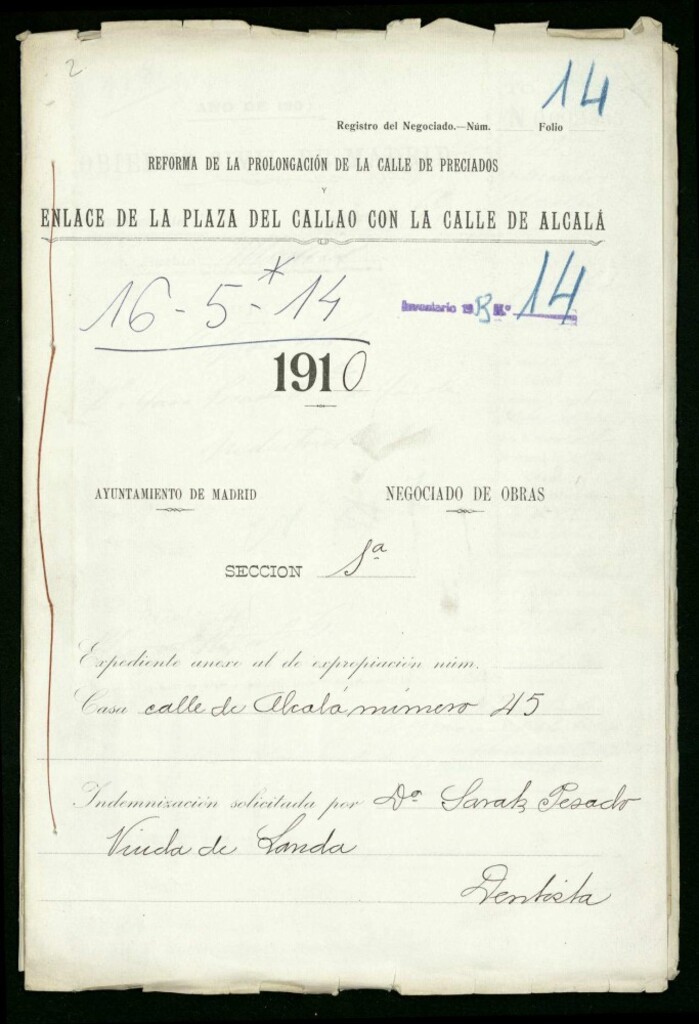 2
14
Registro del Negociado.—Núm. Folio
REFORMA DE LA PROLONGACIÓN DE LA CALLE DE PRECIADOS
Y
ENLACE DE LA PLAZA DEL CALLAO CON LA CALLE DE ALCALÁ
16-5-*14
Inventario 19B N.º 14
1910
AYUNTAMIENTO DE MADRID
NEGOCIADO DE OBRAS
SECCION 1ª
Expediente anexo al de expropiación núm.
Casa calle de Alcalá número 45
Indemnización solicitada por Dª Sarah Pesado
Viuda de Landa
Dentista